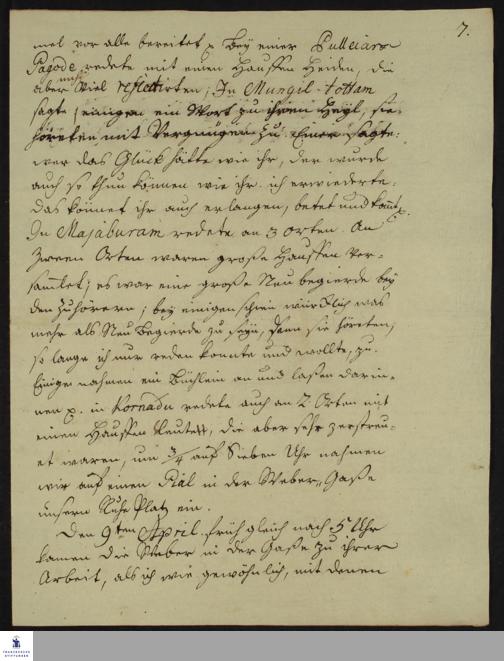 7.
mel vor alle bereitet p Bey einer Pulleiars
Pagode redete mit einen Hauffen Heiden, die
aber nicht viel reflectirten; In Mungil-tottam
sagte einigen ein Wort zu ihrem Heyl, sie
höreten mit Vergnügen zu. Einer sagte:
wer das Glück hätte wie ihr, der wurde
auch so thun können wie ihr. ich erwiederte:
das könnet ihr auch erlangen, betet und kommt p.
In Majaburam redete an 3 Orten. An
zween Orten waren große Hauffen ver-
samlet; es war eine große Neubegierde bey
den Zuhörern; bey einigen schien würcklich was
mehr als Neubegierde zu seyn, denn sie höreten,
so lange ich nur reden konnte und wollte, zu.
Einige nahmen ein Büchlein an und lasen darin-
nen p. in Kornadu redete auch an 2. Orten mit
einen Hauffen Leuten, die aber sehr zerstreu-
et waren, um 3/4 auf Sieben Uhr nahmen
wir auf einen Pial in der Weber-Gaße
unsern Ruhe Platz ein.
Den 9ten April früh gleich nach 5 Uhr
kamen die Weber in der Gaße zu ihrer
Arbeit, als ich wie gewöhnlich, mit denen
FRANCKESCHE
STIFTUNGEN